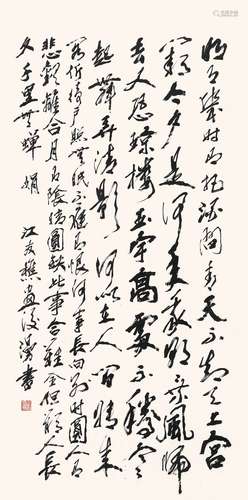 明月幾時有把酒問青天不知天上宮
闕今夕是何年我欲乘風歸
去又恐瓊樓玉宇高處不勝寒
起舞弄清影何似在人間轉朱
閣低綺戶照無眠不應有恨何事長向別時圓人有
悲歡離合月有陰晴圓缺此事古難全但願人長
久千里共嬋娟 江友樵畫後漫書